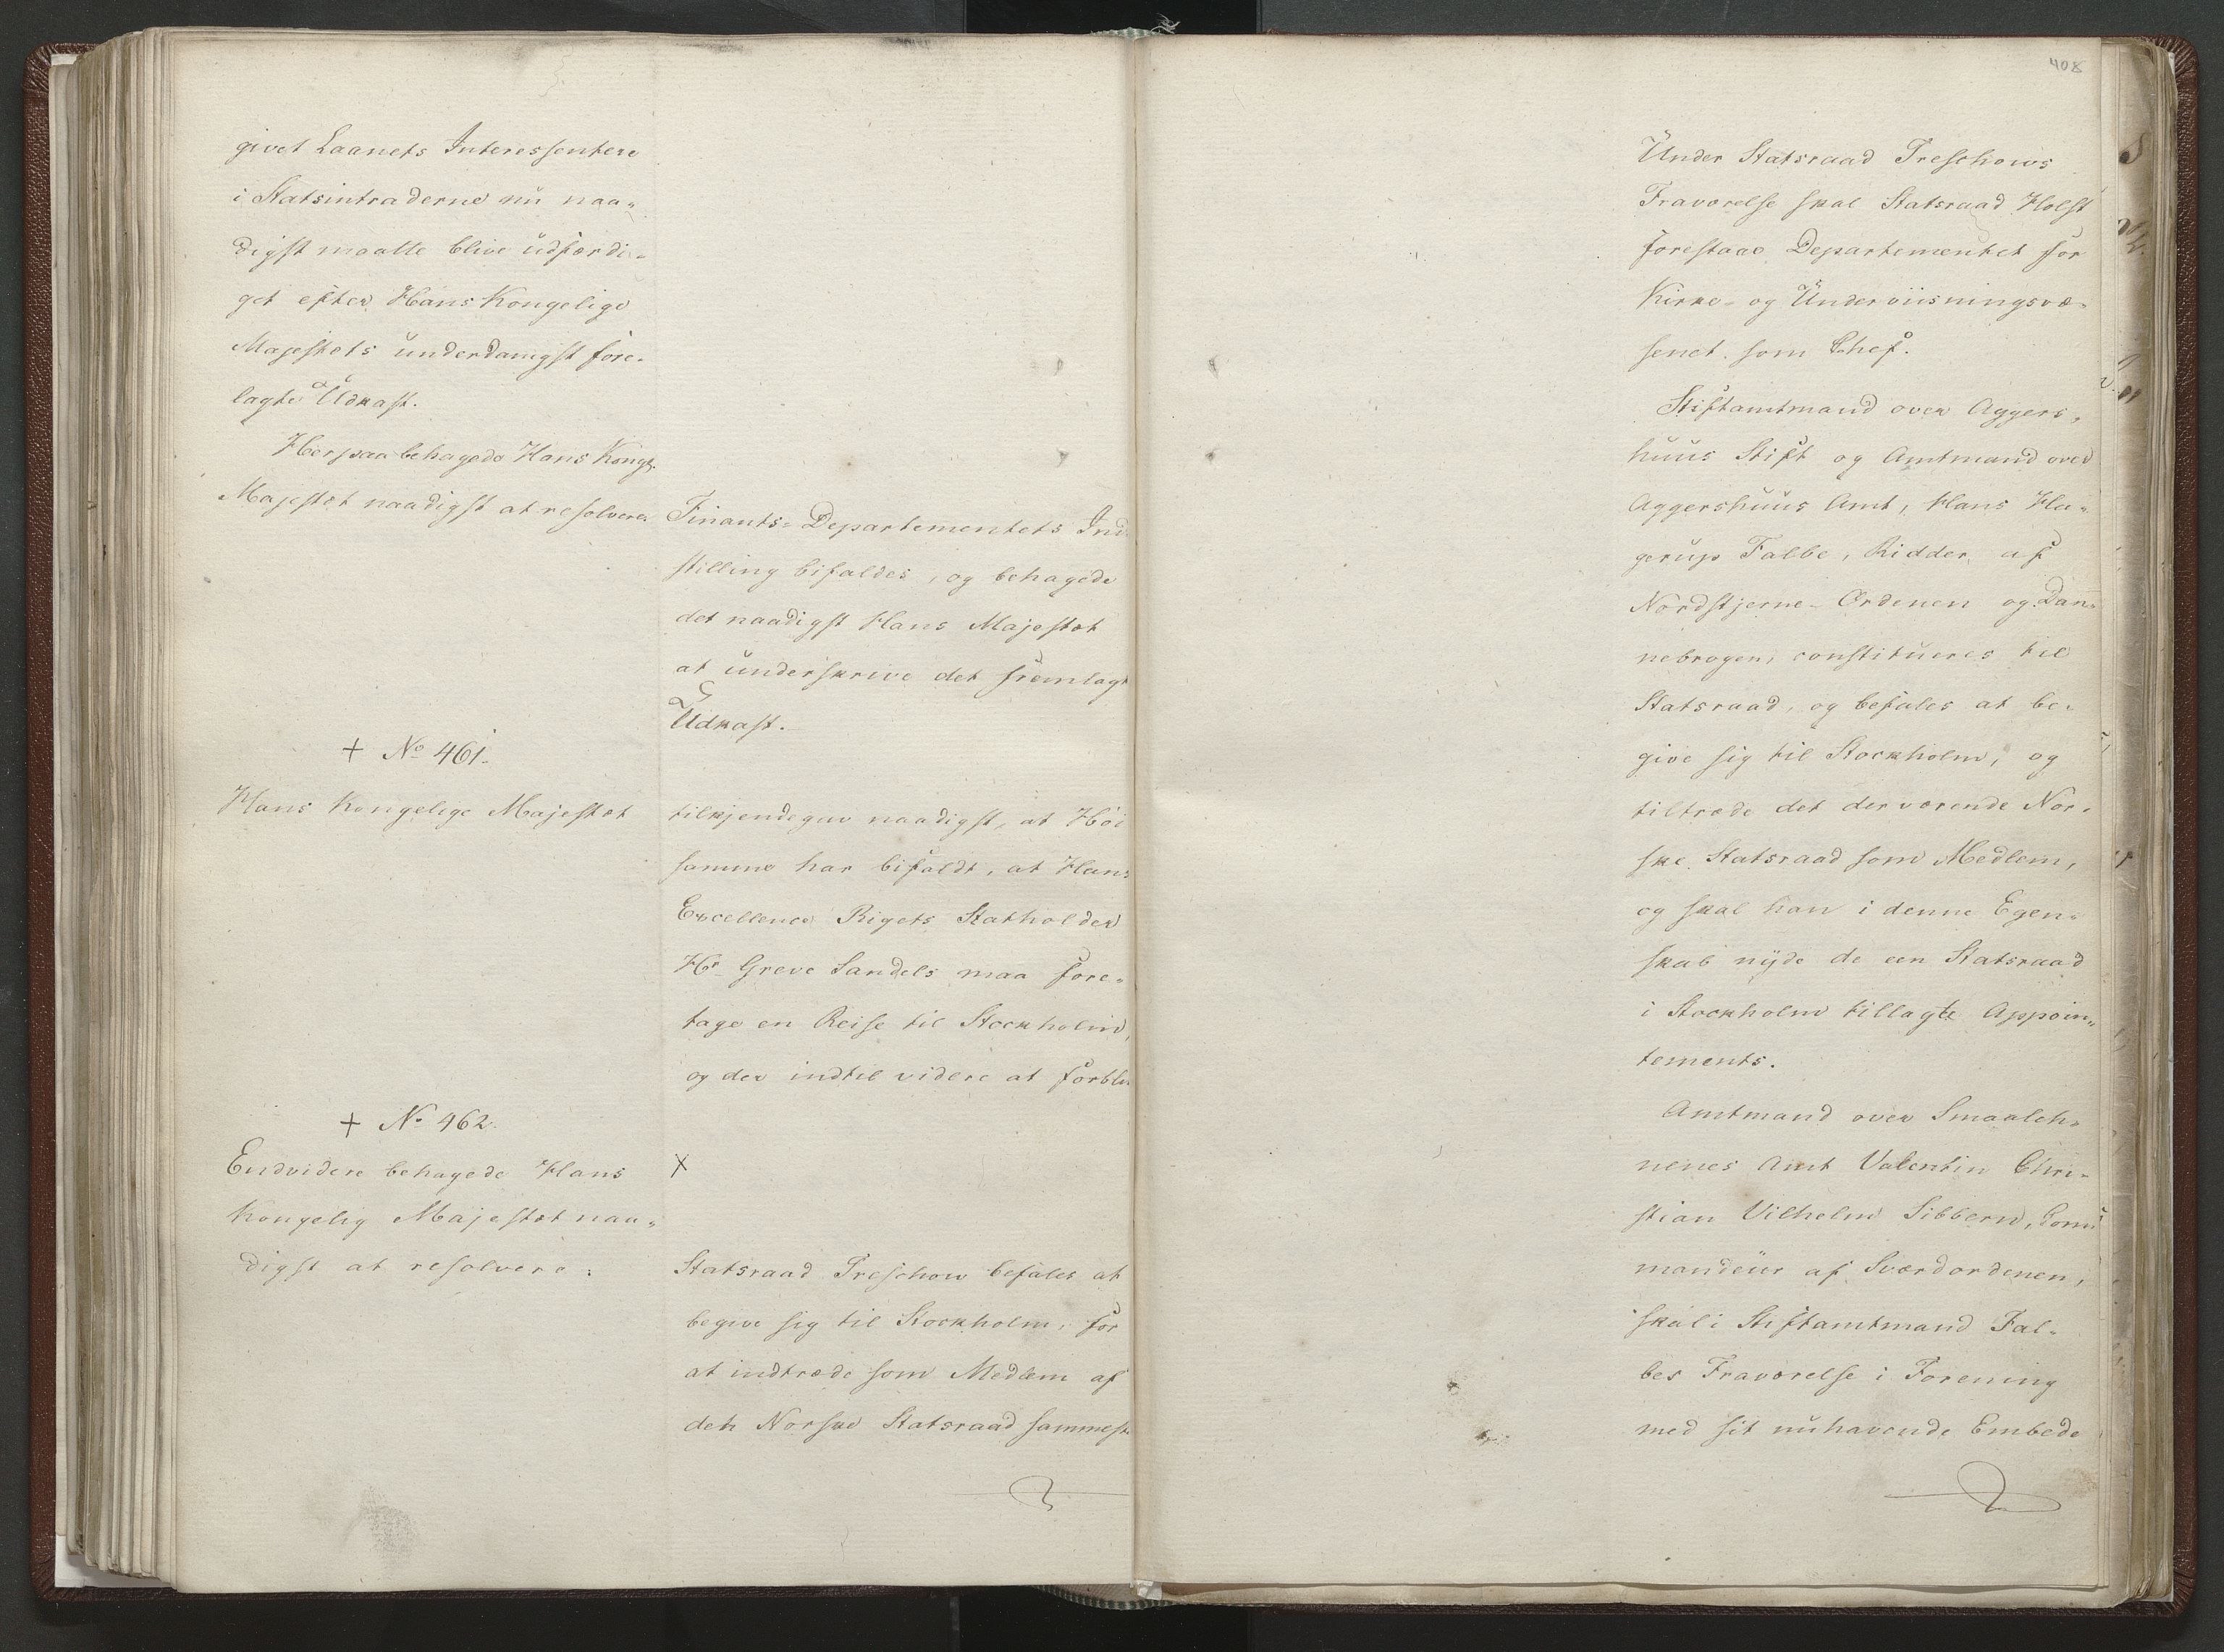 givet Laanets Interessentere
i Statsintraderne nu naa-
digst maatte blive udfærdi-
get efter Hans Kongelige
Majestets underdanigst fore-
lagte Udkast.
Herpaa behagede Hans Kongl.
Majestæt naadigst at resolvere
Finants-Departementets Ind
stilling bifaldes, og behagede
det naadigst Hans Majestæt
at underskrive det fremlagt
Udkast.
+ No 461.
Hans Kongelige Majestæt
tilkjendegav naadigst, at Höi
samme har bifaldt, at Hans
Excellence Rigets Statholder
Hr Greve Sandels maa fore-
tage en Reise til Stockholm,
og der indtil videre at forbli
+ No 462.
Endvidere behagede Hans
Kongelig Majestæt naa-
digst at resolvere:
X
Statsraad Treschow befales at
begive sig til Stockholm, for
at indtræde som Medlem af
det Norske Statsraad sammest
408
Under Statsraad Treschows
Fraværelse skal Statsraad Holst
forestaae Departementet for
Kirke- og Underviisningsvæ-
senet som Chef.
Stiftamtmand over Aggers-
huus Stift og Amtmand over
Aggershuus Amt, Hans Ha-
gerup Falbe, Ridder af
Nordstjerne-Ordenen og Dan-
nebrogen, constitueres til
Statsraad, og befales at be-
give sig til Stockholm, og
tiltræde det derværende Nor-
ske Statsraad som Medlem,
og skal han i denne Egen-
skab nyde de een Statsraad
i Stockholm tillagte Appoin-
tements.
Amtmand over Smaaleh-
nenes Amt Valentin Chri-
stian Vilhelm Sibbern, Com
mandeur af Sværdordenen,
skal i Stiftamtmand Fal-
bes Fraværelse i Forening
med sit nuhavende Embede